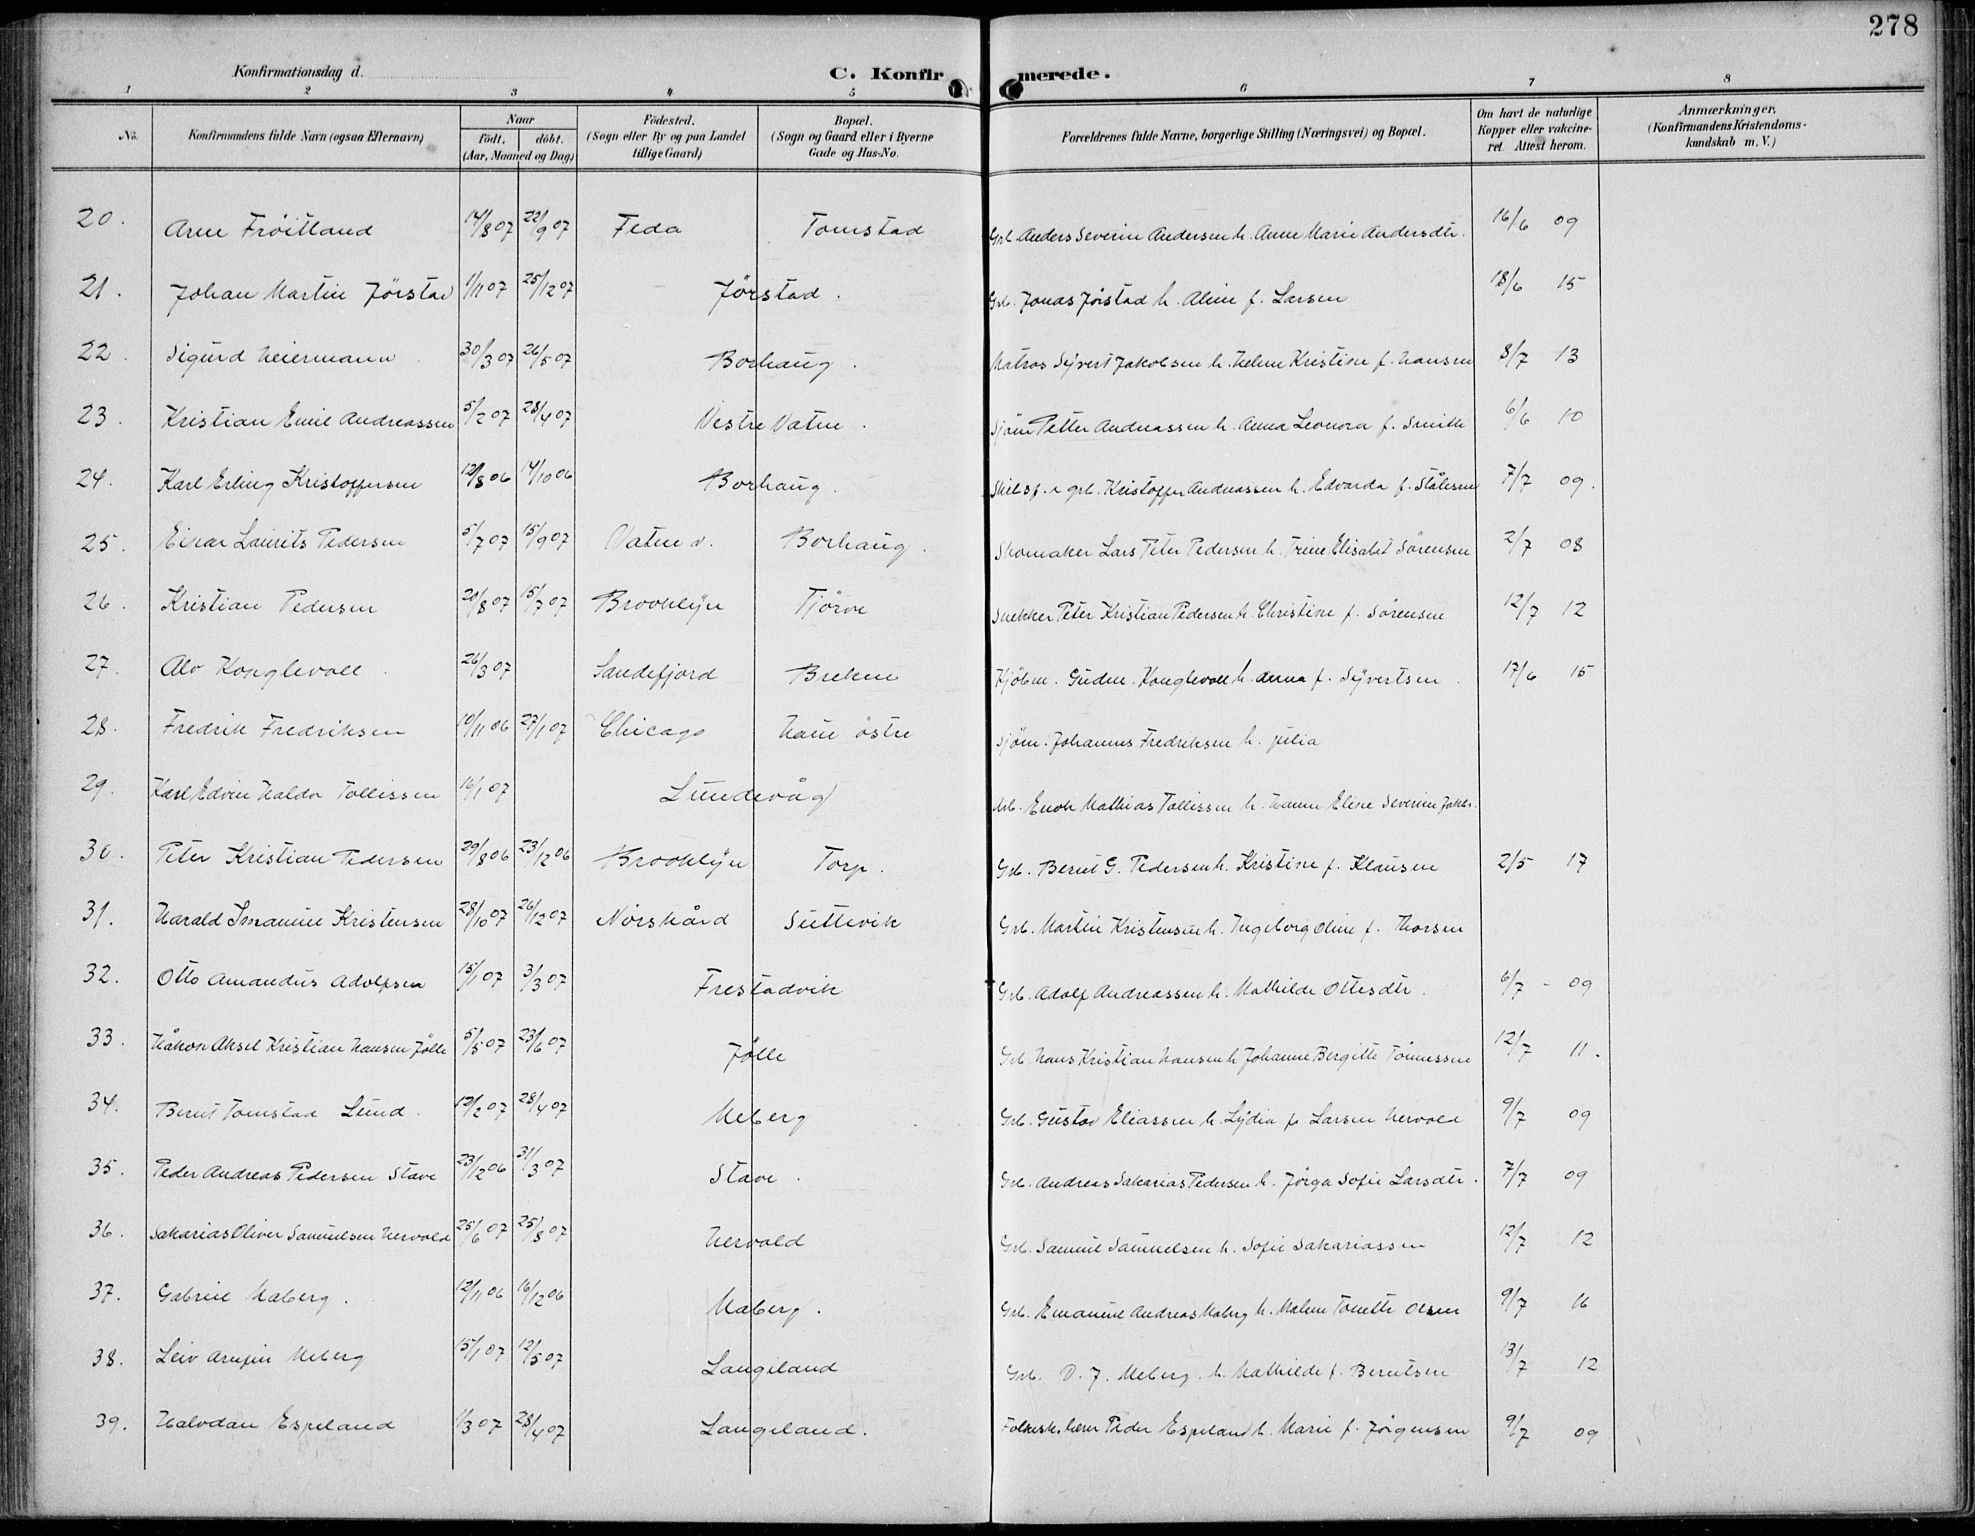 278
Konfirmationsdag d.
C. Konfirmerede.
1 2 3 4 5 6 7 8
No. Konfirmandens fulde Navn (ogsaa Efternavn) Naar födt. döbt. (Aar, Maaned og Dag) Födested. (Sogn eller By og paa Landet tillige Gaard) Bopæl. (Sogn og Gaard eller i Byerne Gade og Hus-No. Forældrenes fulde Navne, borgerlige Stilling (Næringsvei) og Bopæl. Om havt de naturlige Kopper eller vakcineret. Attest herom. Anmærkninger. (Konfirmandens Kristendomskundskab m. V.)
20. Arne Fröitland 14/8 07 22/9 07 Feda Tomstad Grb. Anders Severin Andersen h. Anne Marie Andersdtr. 16/6 09
21. Johan Martin Jörstad 1/11 07 25/12 07 Jörstad. Grb. Jonas Jörstad h. Aline f. Larsen 18/6 15
22. Sigurd Heiermann 30/3 07 26/5 07 Borhaug. Matros Syvert Jakobsen h. Helene Kristine f. Hansen 8/7 13
23. Kristian Emil Andreassen 5/2 07 28/4 07 Vestre Vatne. Sjöm Petter Andreassen h. Anna Leonora f. Smith 6/6 10
24. Karl Erling Kristoffersen 12/8 06 14/10 06 Borhaug. Skibsf. & grb. Kristoffer Andreassen h. Edvarda f. Stålesen 7/7 09.
25. Einar Laurits Pedersen 5/7 07 15/9 07 Vatne v. Borhaug. Skomaker Lars Peter Pedersen h. Trine Elisabet Sörensen 2/7 08
26. Kristian Pedersen 20/8 07 15/7 07 Brooklyn Tjörve Snekker Peter Kristian Pedersen h. Christine f. Sörensen 12/7 12
27. Alv Konglevoll. 26/3 07 Sandefjord Brekne Kjöbm. Gudm. Konglevoll h. Anna f. Syvertsen. 17/6 15
28. Fredrik Fredriksen 10/11 06 27/1 07 Chicago Haue östre Sjöm. Johannes Fredriksen h. Julia
29. Karl Edvin Haldor Tollissen 16/1 07 Lundevåg Arb. Enok Mathias Tollissen h. Hanne Eline Severine Jakbs.
30. Peter Kristian Pedersen 29/8 06 23/12 06 Brooklyn Torp. Grb. Bernt G. Pedersen h. Kristine f. Klausen 2/5 17
31. Harald Imanuel Kristensen 28/10 07 26/12 07 Nörskård Sullevik Grb. Martin Kristensen h. Ingeborg Oline f. Thorsen
32. Otto Amandus Adolfsen 15/1 07 3/3 07 Frestadvik Grb. Adolf Andreassen h. Mathilde Ottesdtr. 6/7 - 09
33. Håkon Aksel Kristian Hansen Jölle 5/5 07 23/6 07 Jölle Grb. Hans Kristian Hansen h. Johanne Bergitte Tönnessen 12/7 11.
34. Bernt Tomstad Lund. 12/2 07 28/4 07 Meberg Grb. Gustav Eliassen h. Lydia f. Larsen Hervold 9/7 09
35. Peder Andreas Pedersen Stave 23/12 06 31/3 07 Stave. Grb. Andreas Sakarias Pedersen h. Jörga Sofie Larsdtr. 7/7 09
36. Sakarias Oliver Samuelsen Hervold 25/6 07 25/8 07 Hervold Grb. Samuel Samuelsen h. Sofie Sakariassen 12/7 12
37. Gabriel Maberg. 12/11 06 16/12 06 Maberg. Grb. Emanuel Andreas Maberg h. Malene Tonette Olsen 9/7 16
38. Leiv Meberg 15/1 07 12/5 07 Langeland Grb. D. J. Meberg. h. Mathilde f. Berntsen 13/7 12
39. Halvdan Espeland 1/3 07 28/4 07 Langeland. Folkesk.lærer Peder Espeland h. Marie f. Jörgensen 9/7 09